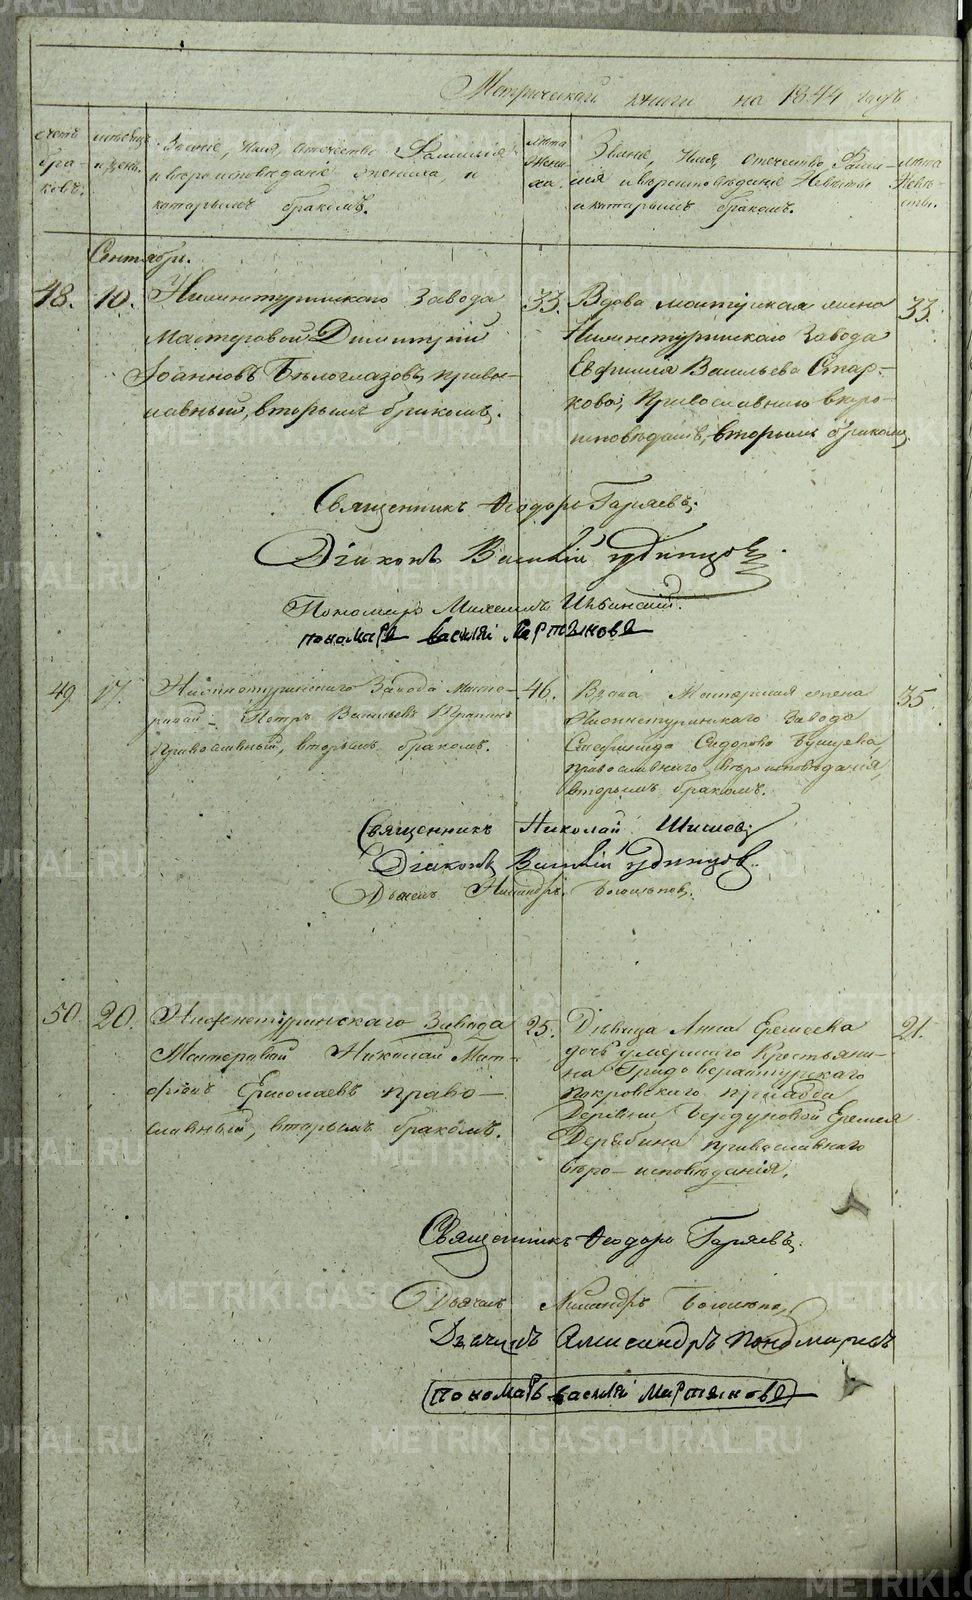 Метрической книги на 1844 годъ
счетъ бра-ковъ.
мѣсяцъ и день.
Званіе, Имя, отечество Фамилія
и вѣроисповѣданіе жениха, и
которымъ бракомъ.
лѣта Жени-ха.
Званіе, Имя, отечество, Фами-
лія и вѣроисповѣданіе Невѣсты
и которымъ бракомъ.
лѣта Невѣ-сты.
Сентябрь.
48. 10. Нижнетуринскаго Завода
Мастеровой Димитрій
Іоанновъ Бѣлоглазовъ, право-
славный, вторымъ бракомъ.
33.
Вдова мастерская жена
Нижнетуринскаго Завода
Евфимія Васильева Стар-
кова, Православнаго вѣро-
исповѣданія, вторымъ бракомъ.
33.
Священникъ Ѳеодоръ Гаряевъ.
Діаконъ Василій Удинцовъ.
Пономарь Михаилъ Ильинскій.
пономарь василяі Мартяновъ
49. 17. Нижнетуринскаго Завода Масте-
ровой Петръ Васильевъ
Православный, вторымъ бракомъ.
46.
Вдова Мастерская жена
Нижнетуринскаго Завода
Сидорова
православнаго вѣроисповѣданія,
вторымъ бракомъ.
35
Священникъ Николай Шишовъ
Діаконъ Василій Удинцовъ.
Дьячекъ Никандръ Богомолов.
50. 20. Нижнетуринскаго Завода
Мастеровой Николай Мат-
фѣевъ Ермолаевъ право-
славный, вторымъ бракомъ.
25.
Дѣвица Анна Еремеева
дочь умершаго Крестьяни-
на Града верхотурскаго
покровскаго прихода
Деревни Бердуновой Еремея
Дерябина православнаго
вѣро-исповѣданія.
21.
Священникъ Ѳеодоръ Гаряевъ.
Дьячекъ Никандръ
Дьячекъ Александръ Пономаревъ
пономарь василяі Мартяновъ
METRIKI.GASO-URAL.RU